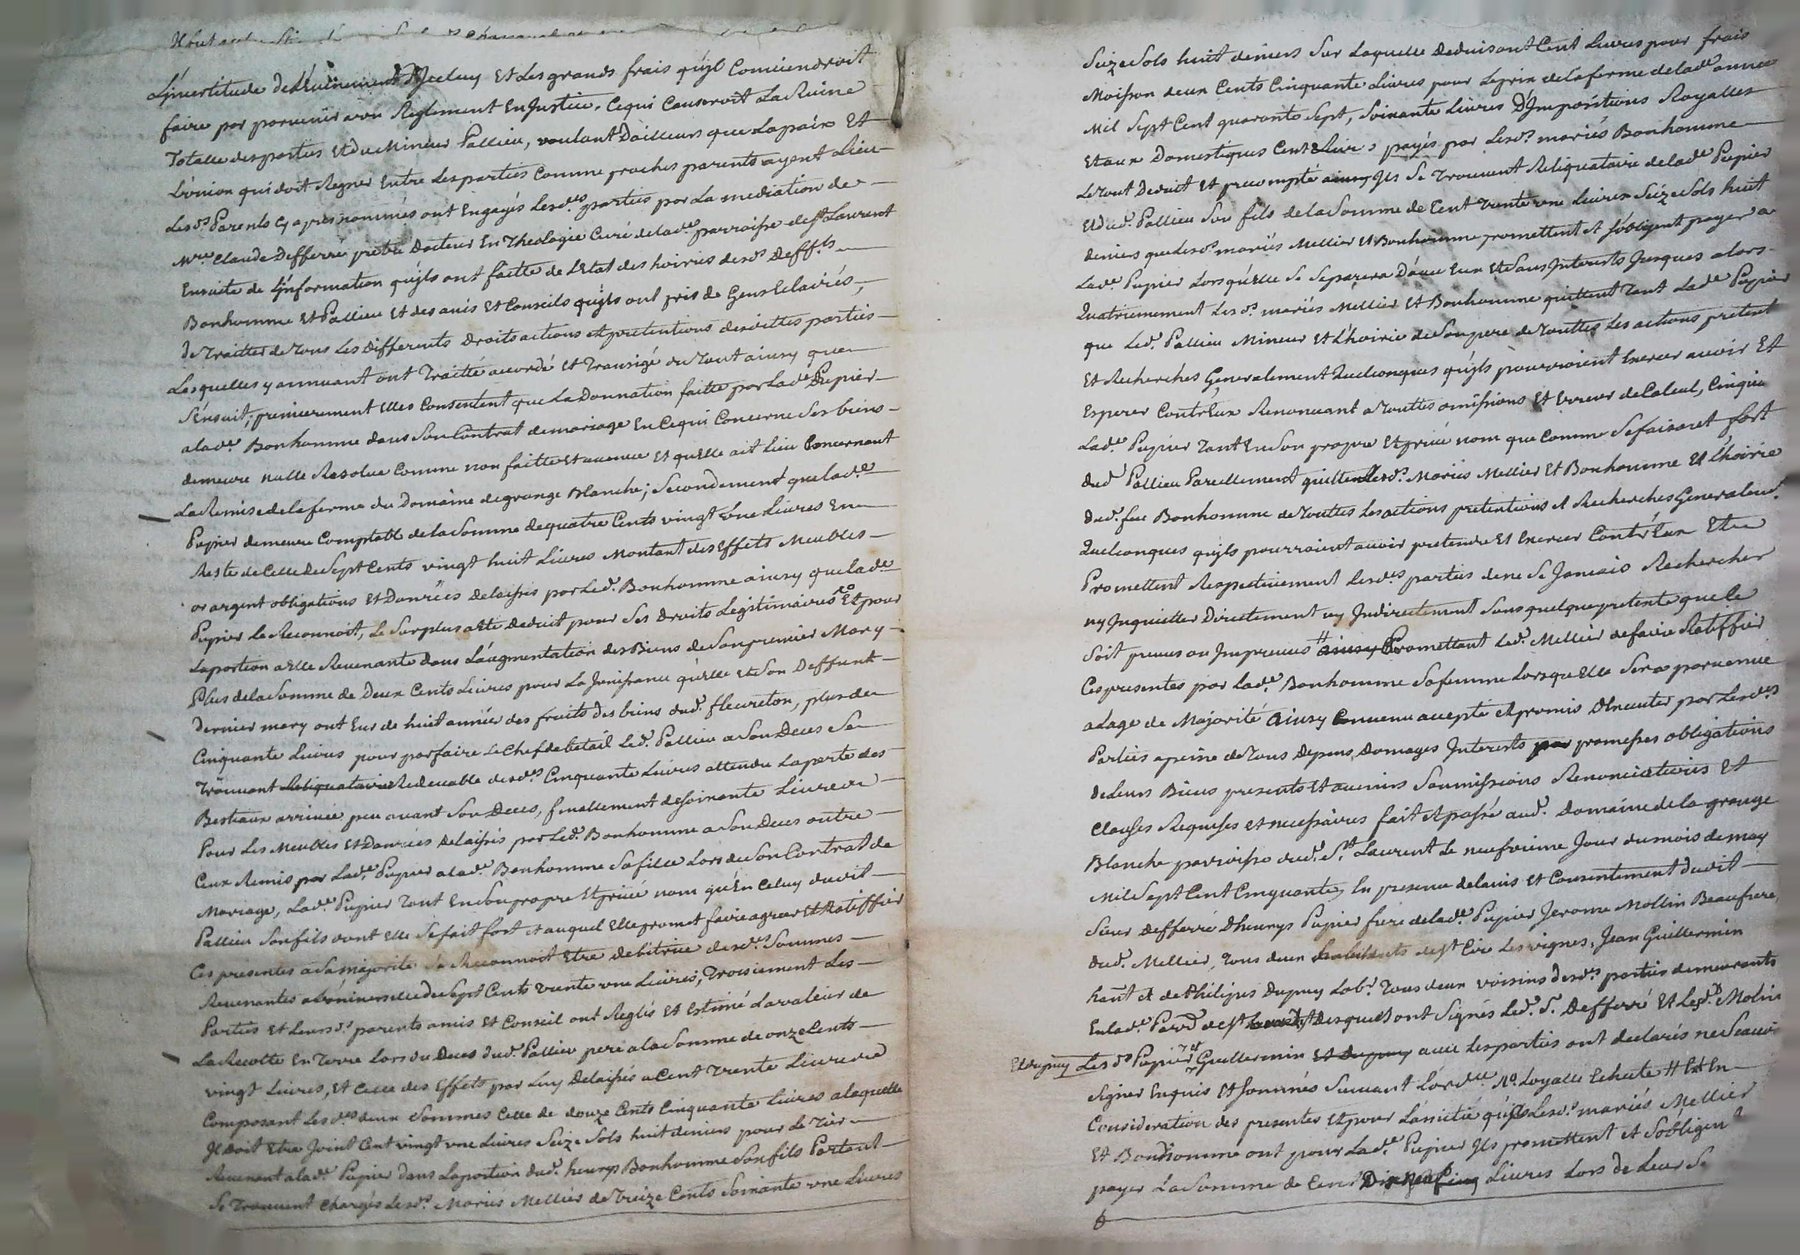 L'jncertitude de L'Evénement d'Jceluy Et Les grands frais quïls Conviendroit
faire por parvenir a un Reglement En Justice, Ce qui Causeroit La Ruine
Totalle des parties Et du Mineur Pallieu, voulant D'ailleurs que La paix Et
L'union qui doit Regner Entre Les parties Comme proches parents ayent Lieu
Les d.s Parents Cy apres nommés ont Engagés Lesd.es parties par La mediation de
M.re Claude Defferre prêtre Docteur En Theologie Curé de lad.e parroisse de S.t Laurent
Ensuite de L'jnformation quïls ont faitte de L'Etat des hoiries desd.s Deff.ts
Bonhomme Et Pallieu Et des avis Et Conseils quïls ont pris de Gens Eclairés,
de Traitter de Tous Les differents Droits actions et pretentions desdittes parties
Lesquelles y annuant ont Traitté accordé et Transigé du Tout ainsy que
S'ensuit; premierement Elles Consentent que La Donnation faitte par Lad.e Pupier
a lad.e Bonhomme dans Son Contrat de mariage En Ce qui Concerne Ses biens
demeure nulle Resolue Comme non faitte et avenue Et qu'elle ait Lieu Concernant
La Remise de la ferme du Domaine de grange Blanche; Secondement que lad.e
Pupier demeure Comptable de la Somme de quatre Cents vingt une Livres En
Reste de Celle de Sept Cents vingt huit Livres Montant des Effets Meubles
or argent obligations Et Danrées delaissés par Led. Bonhomme ainsy que lad.e
Pupier Le Reconnoit, Le Surplus a Eté deduit pour Ses Droits Legitimaires Et pour
La portion a Elle Revenante dans L'augmentation des Biens de Son premier Mary
Plus de la Somme de Deux Cents Livres pour La Jouissance qu'elle et Son Deffunt
dernier mary ont Eue de huit années des fruits des biens dud. fleureton, plus de
Cinquante Livres pour parfaire Le Chef de bétail Led. Pallieu a Son Deces Se
Trouvant Reliquataire Redevable desd.es Cinquante Livres attendu La perte des
Bestiaux arrivée peu avant Son Deces, finallement de Soixante Livres
Pour Les Meubles Et Danrées Delaissés par Led. Bonhomme a Son Deces outre
Ceux Remis par Lad.e Pupier a lad.e Bonhomme Sa fille Lors de Son Contrat de
Mariage, Lad.e Pupier Tant En Son propre Et privé nom qu'En Celuy dudit
Pallieu Son fils dont Elle Se fait fort et auquel Elle promet faire agreer Et Ratiffier
Ces presentes a Sa majorité Se Reconnoit Etre debitrice desd.es Sommes
Revenantes a L'universelle de Sept Cents Trente une Livres; Troisiement Les
Parties et Leurs d.s parents amis Et Conseil ont Reglés Et Estimé La valeur de
La Recolte En Terre Lors du Deces dud. Pallieu pere a la Somme de onze Cents
vingt Livres, Et Celle des Effets par Luy Delaissés a Cent Trente Livres
Composant Lesd.es deux Sommes Celle de douze Cents Cinquante Livres a laquelle
Jl doit Etre Joint Cent vingt une Livres Seize Sols huit deniers pour Le Tier
Revenant a lad.e Pupier dans La portion dud. henrys Bonhomme Son fils Partant
Se Trouvent Chargés Lesd.s Mariés Mellier de Treize Cents Soixante une Livres
Seize Sols huit deniers Sur Laquelle deduisant Cent Livres pour frais
Moisson deux Cents Cinquante Livres pour Le prix de La ferme de lad.e année
Mil Sept Cent quarante Sept, Soixante Livres D'Impositions Royalles
Et aux Domestiques Cent Livres payés par Lesd.s mariés Bonhomme
Le Tout Deduit Et precompté ainsy Jls Se Trouvent Reliquataire de lad.e Pupier
Et dud. Pallieu Son fils de la Somme de Cent Trente une Livres Seize Sols huit
deniers que Lesd.s mariés Mellier Et Bonhomme promettent et S'obligent payer a
Lad.e Pupier Lors qu'Elle Se Separera D'avec Eux Et Sans Jnterests Jusques alors.
Quatriemement Lesd.s mariés Mellier Et Bonhomme quittent Tant Lad.e Pupier
que Led. Pallieu Mineur Et L'hoirie de Son pere de Touttes Les actions pretent.
Et Recherches Generalement Quelconques quïls pourroient Exercer avoir Et
Esperer Contr'Eux Renonçant a Touttes omissions Et Erreur de Calcul, Cinqui.
Lad.e Pupier Tant En Son propre Et privé nom que Comme Se faisant fort
dud. Pallieu Pareillement quitte Lesd.s Mariés Mellier Et Bonhomme Et L'hoirie
dud. feu Bonhomme de Touttes Les actions pretentions et Recherches Generalem.t
Quelconques quïls pourroient avoir pretendre Et Exercer Contr'Eux Et
Promettent Respectivement Lesd.es parties de ne Se Jamais Rechercher
ny Jnquietter Directement ny Jndirectement Sous quelque pretexte que Ce
Soit prevus ou Jmprevus # ainsy Promettant Led. Mellier de faire Ratiffier
Ces presentes par Lad.e Bonhomme Sa femme Lorsqu'Elle Sera parvenue
a L'age de Majorité Ainsy Convenu accepté et promis D'Executer par Lesd.es
Parties a peine de Tous Depens, Domages Jnterests par promesses obligations
de Leurs Biens presents Et avenirs Soumissions Renonciations Et
Clauses Requises et necessaires fait et passé aud. Domaine de la grange
Blanche parroisse dud. S.t Laurent Le neufvieme Jour du mois de may
Mil Sept Cent Cinquante, En presence de lavis et Consentement dudit
Sieur Defferre D'henrys Pupier frere de lad.e Pupier Jerome Mollin Beaufrere
dud. Mellier, Tous deux habitants de S.t Cire Les vignes, Jean Guillermin
hant et de Philipes Dupuy Lab.r Tous deux voisins desd.es parties demeurants
En lad.e Parr.e de S.t Laurent Lesquels ont Signés Led. S.r Defferré Et Led. S.r Molin
Et dupuy Les d.s Pupier et Guillermin Et Dupuy avec Les parties ont declarés ne Scavoir
Signer Enquis Et Sommés Suivant L'ord.ce Ro.le Loyalle Echute # Et En
Consideration des presentes Et pour L'amitié quïls Lesd.s mariés Mellier
Et Bonhomme ont pour Lad.e Pupier Jls promettent et S'obligent
payer La Somme de Cent Livres Lors de Leur Se